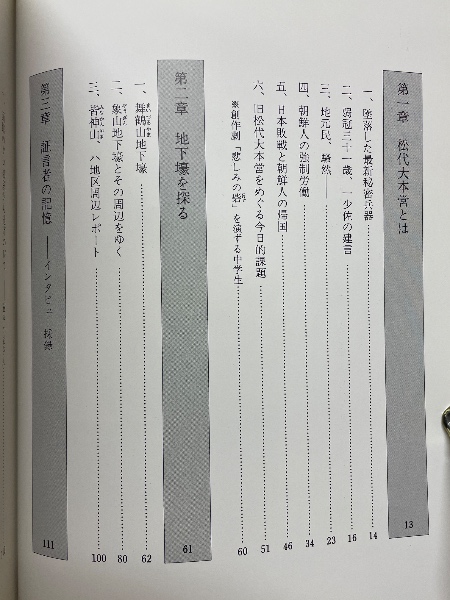 第一章 松代大本営とは 13
一、墜落した最新秘密兵器 14
二、弱冠三十一歳、一少佐の建言 16
三、地元民、騒然―― 23
四、朝鮮人の強制労働 34
五、日本敗戦と朝鮮人の帰国 46
六、旧松代大本営をめぐる今日的課題 51
※創作劇「悲しみの砦」を演ずる中学生 60
第二章 地下壕を探る 61
一、舞鶴山地下壕 62
二、象山地下壕とその周辺をゆく 80
三、皆神山、ハ地区周辺レポート 100
第三章 証言者の記憶 ――インタビュー採録 111